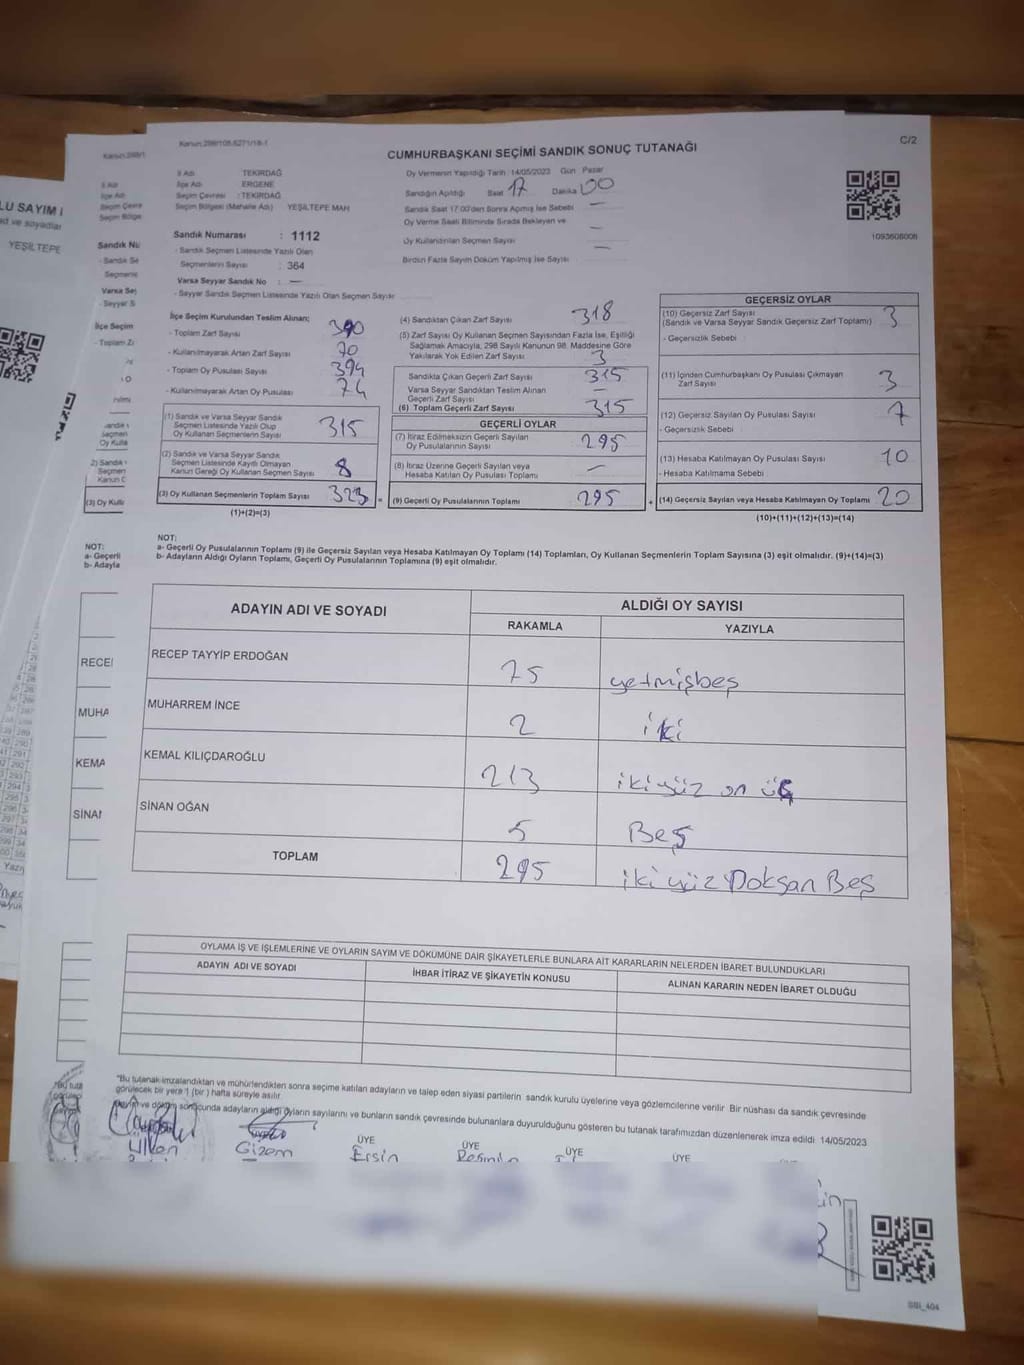 Kanun:298/105,6271/18-1
C/2
CUMHURBAŞKANI SEÇİMİ SANDIK SONUÇ TUTANAĞI
İl Adı : TEKİRDAĞ
İlçe Adı : ERGENE
Seçim Çevresi : TEKİRDAĞ
Seçim Bölgesi (Mahalle Adı) : YEŞİLTEPE MAH
Oy Vermenin Yapıldığı Tarih :14/05/2023 Gün Pazar
Sandığın Açıldığı Saat 17 Dakika 00
Sandık Saat 17.00'den Sonra Açılmış İse Sebebi —
Oy Verme Saati Bitiminde Sırada Bekleyen ve
Oy Kullandırılan Seçmen Sayısı —
Birden Fazla Sayım Döküm Yapılmış İse Sayısı —
1093608008
Sandık Numarası : 1112
- Sandık Seçmen Listesinde Yazılı Olan
Seçmenlerin Sayısı : 364
Varsa Seyyar Sandık No : —
- Seyyar Sandık Seçmen Listesinde Yazılı Olan Seçmen Sayısı
İlçe Seçim Kurulundan Teslim Alınan;
- Toplam Zarf Sayısı 390
- Kullanılmayarak Artan Zarf Sayısı 70
- Toplam Oy Pusulası Sayısı 394
- Kullanılmayarak Artan Oy Pusulası 74
(1) Sandık ve Varsa Seyyar Sandık
Seçmen Listesinde Yazılı Olup
Oy Kullanan Seçmenlerin Sayısı 315
(2) Sandık ve Varsa Seyyar Sandık
Seçmen Listesinde Kayıtlı Olmayan
Kanun Gereği Oy Kullanan Seçmen Sayısı 8
(3) Oy Kullanan Seçmenlerin Toplam Sayısı 323
(1)+(2)=(3)
(4) Sandıktan Çıkan Zarf Sayısı 318
(5) Zarf Sayısı Oy Kullanan Seçmen Sayısından Fazla İse, Eşitliği
Sağlamak Amacıyla, 298 Sayılı Kanunun 98. Maddesine Göre
Yakılarak Yok Edilen Zarf Sayısı 3
Sandıkta Çıkan Geçerli Zarf Sayısı 315
Varsa Seyyar Sandıktan Teslim Alınan
Geçerli Zarf Sayısı —
(6) Toplam Geçerli Zarf Sayısı 315
GEÇERLİ OYLAR
(7) İtiraz Edilmeksizin Geçerli Sayılan
Oy Pusulalarının Sayısı 295
(8) İtiraz Üzerine Geçerli Sayılan veya
Hesaba Katılan Oy Pusulası Toplamı —
= (9) Geçerli Oy Pusulalarının Toplamı 295
GEÇERSİZ OYLAR
(10) Geçersiz Zarf Sayısı
(Sandık ve Varsa Seyyar Sandık Geçersiz Zarf Toplamı) 3
- Geçersizlik Sebebi :
(11) İçinden Cumhurbaşkanı Oy Pusulası Çıkmayan
Zarf Sayısı 3
(12) Geçersiz Sayılan Oy Pusulası Sayısı 7
- Geçersizlik Sebebi :
(13) Hesaba Katılmayan Oy Pusulası Sayısı 10
- Hesaba Katılmama Sebebi :
+ (14) Geçersiz Sayılan veya Hesaba Katılmayan Oy Toplamı 20
(10)+(11)+(12)+(13)=(14)
NOT:
a- Geçerli Oy Pusulalarının Toplamı (9) ile Geçersiz Sayılan veya Hesaba Katılmayan Oy Toplamı (14) Toplamları, Oy Kullanan Seçmenlerin Toplam Sayısına (3) eşit olmalıdır. (9)+(14)=(3)
b- Adayların Aldığı Oyların Toplamı, Geçerli Oy Pusulalarının Toplamına (9) eşit olmalıdır.
ADAYIN ADI VE SOYADI
ALDIĞI OY SAYISI
RAKAMLA YAZIYLA
RECEP TAYYİP ERDOĞAN 75 yetmişbeş
MUHARREM İNCE 2 iki
KEMAL KILIÇDAROĞLU 213 ikiyüz on üç
SİNAN OĞAN 5 Beş
TOPLAM 295 ikiyüz Doksan Beş
OYLAMA İŞ VE İŞLEMLERİNE VE OYLARIN SAYIM VE DÖKÜMÜNE DAİR ŞİKAYETLERLE BUNLARA AİT KARARLARIN NELERDEN İBARET BULUNDUKLARI
ADAYIN ADI VE SOYADI İHBAR İTİRAZ VE ŞİKAYETİN KONUSU ALINAN KARARIN NEDEN İBARET OLDUĞU
"Bu tutanak imzalandıktan ve mühürlendikten sonra seçime katılan adayların ve talep eden siyasi partilerin sandık kurulu üyelerine veya gözlemcilerine verilir. Bir nüshası da sandık çevresinde
görülecek bir yere 1 (bir ) hafta süreyle asılır.
ve döküm sonucunda adayların aldığı oyların sayılarını ve bunların sandık çevresinde bulunanlara duyurulduğunu gösteren bu tutanak tarafımızdan düzenlenerek imza edildi. 14/05/2023
ÜYE ÜYE ÜYE ÜYE
Gizem Ersin
SBİ_404
LU SAYIM
YEŞİLTEPE
Kanun:298/1
İl Adı
İlçe Adı
Seçim Çevre
Seçim Bölge
Sandık Nu
- Sandık Se
Seçmenle
Varsa Sey
- Seyyar S
İlçe Seçim
- Toplam Za
(3) Oy Kulla
NOT:
a- Geçerli
b- Adayla
RECEI
MUHA
KEMA
SİNAI